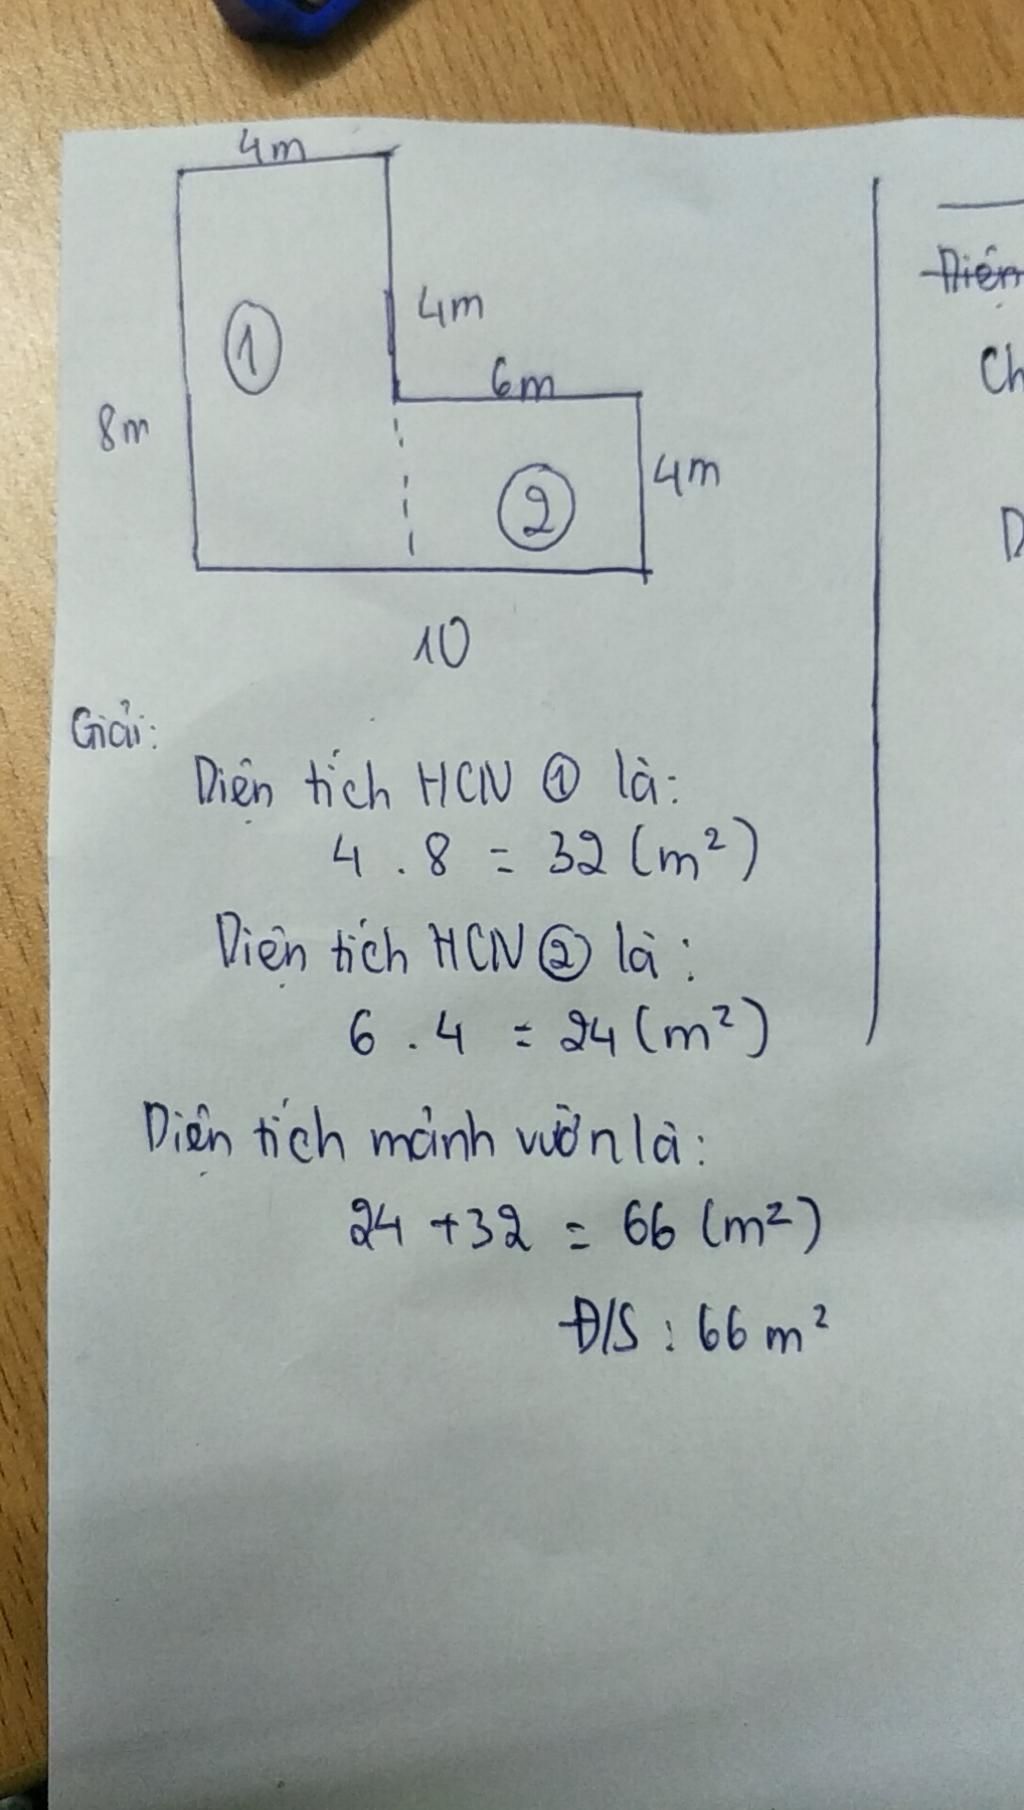 4m
4m
①
6m
8m
4m
②
10
Giải:
Diện tích HCN ① là:
4 . 8 = 32 (m²)
Diện tích HCN ② là:
6 . 4 = 24 (m²)
Diện tích mảnh vườn là:
24 + 32 = 66 (m²)
Đ/S : 66 m²
Diện
Ch